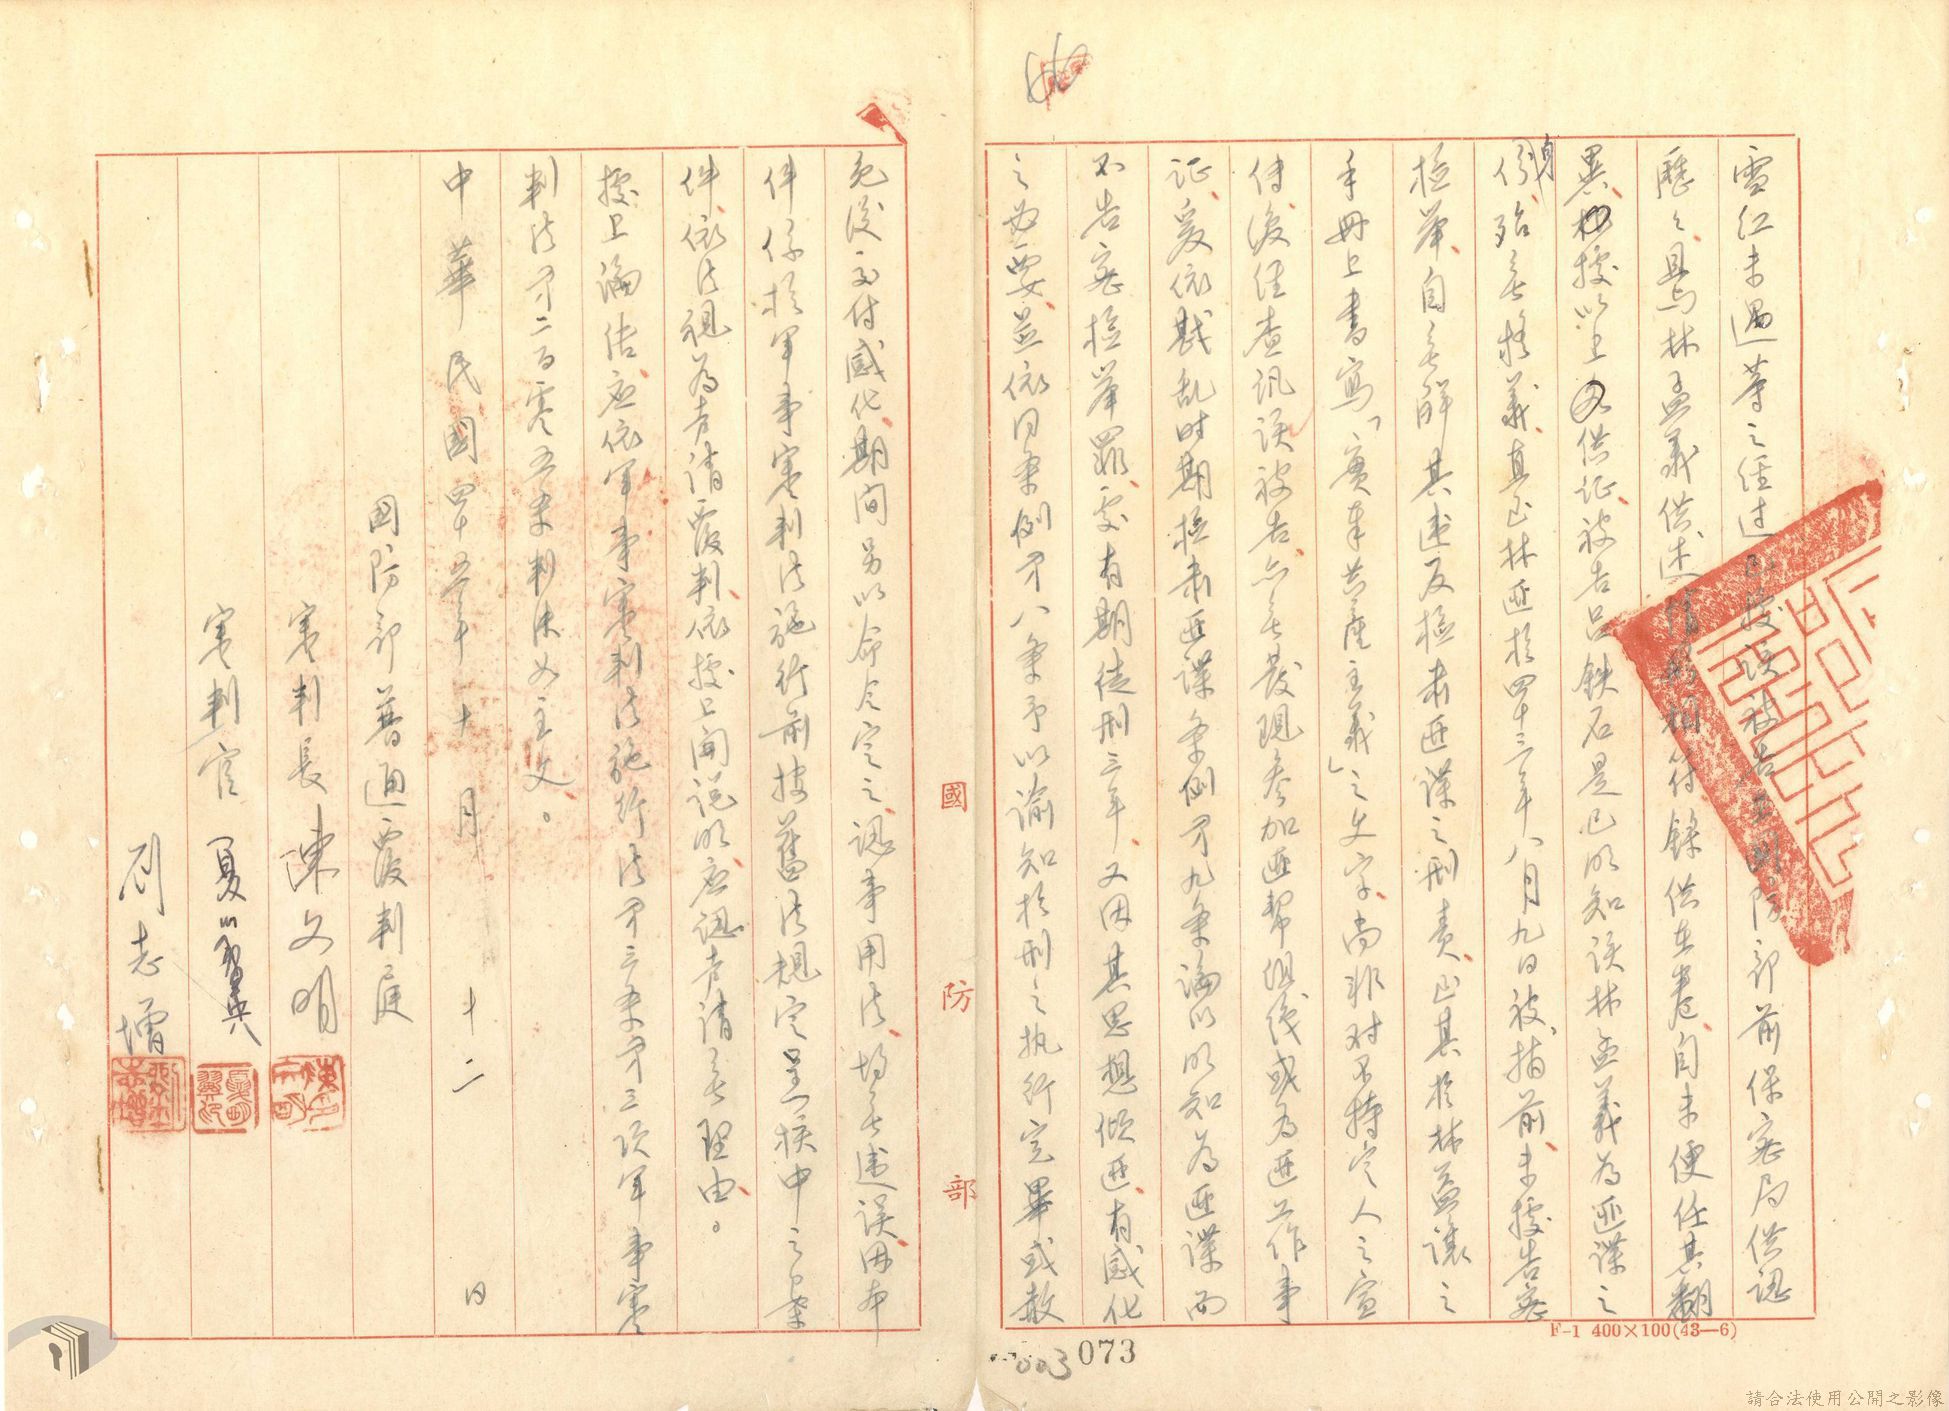 雪紅未遇等之經過已據該被告呂鐵石於國防部前保密局供認
歷歷且與林孟義供述情形相符錄供在卷自未便任其翻
異據以上供證被告呂鐵石是已明知該林孟義為匪諜之
身份殆無疑義真正林匪於四十三年八月九日被捕前未據告密
檢舉自無解其違反檢肅匪諜之刑責山其於林益讓之
手冊上書寫「實奉共產主義」之文字尚非對不特定人之宣
傳復經查訊該被告亦無發現參加匪幫組織或為匪工作事
証爰依戡亂時期檢肅匪諜條例第九條論以明知為匪諜而
不告密檢舉罪處有期徒刑三年又因其思想傾匪有感化
之必要並依同條例第八條予以諭知於刑之執行完畢或赦
免後交付感化期間另以命令定之認事用法均無違誤因本
件係於軍事審判法施行前按舊法規定呈核中之案
件依法視為聲請覆判依據上開說明應認聲請無理由。
據上論結應依軍事審判法施行法第三條第三項軍事審
判法第二百零五條判決如主文。
中華民國四十五年十月十二日
國防部普通覆判庭
審判長 陳文明
審判官 夏
劉志增
國防部
F-1 400×100(43—6)
003
073
請合法使用公開之影像